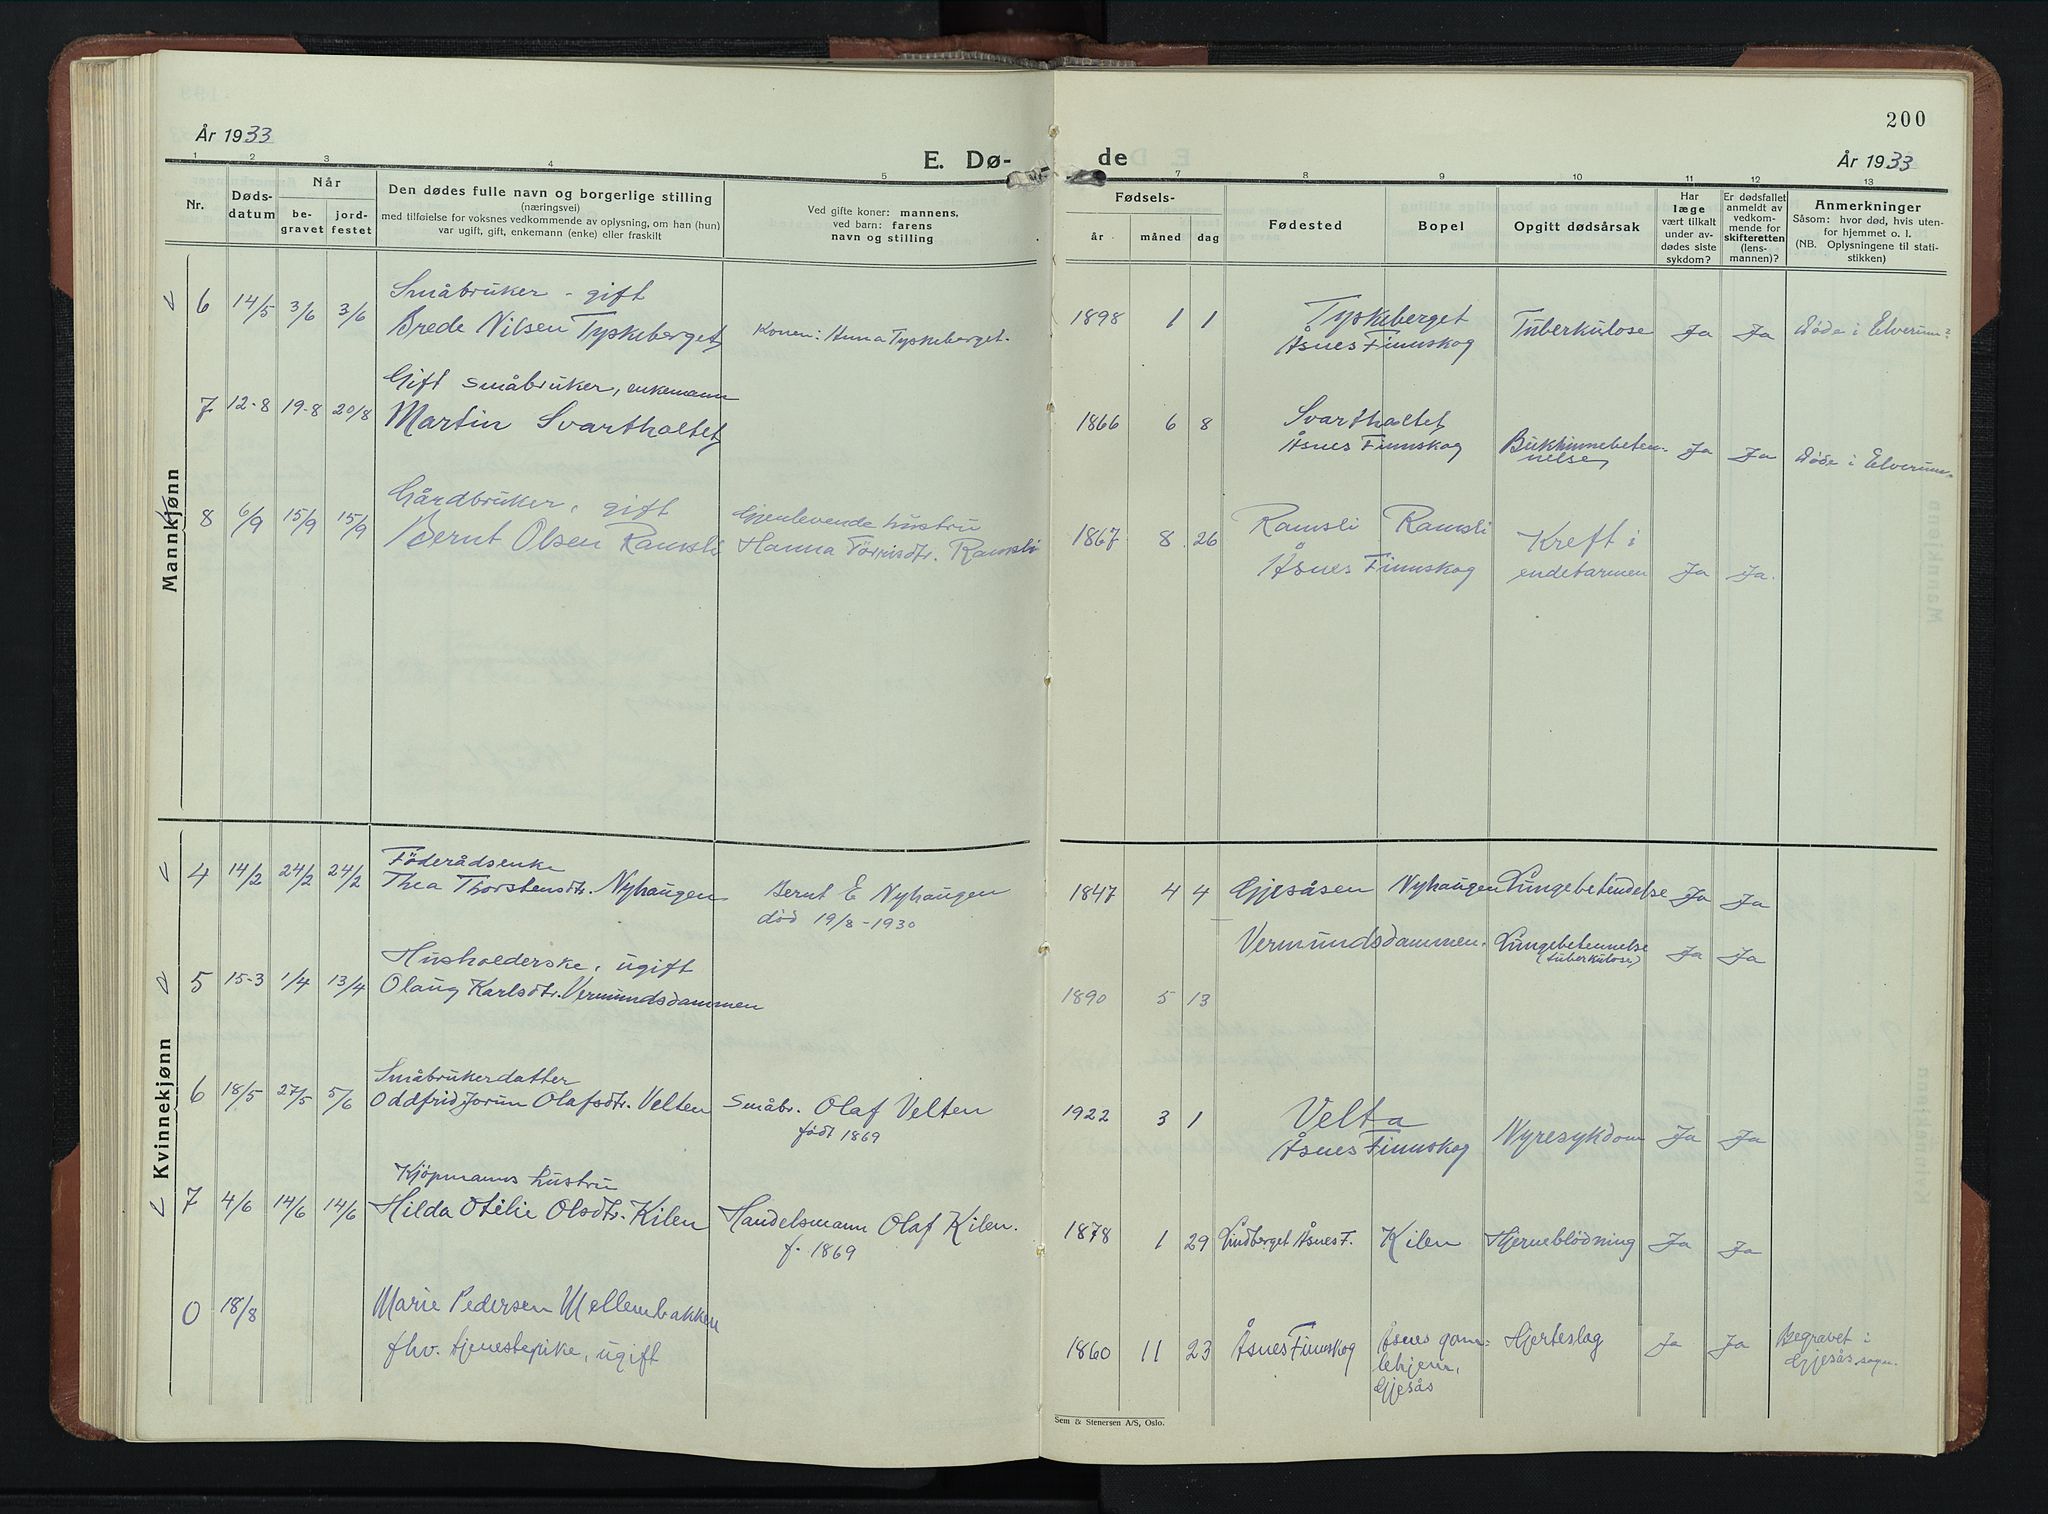 200
År 1933
E. Dø-
de
År 1933
1 2 3 4 5
7 8 9 10 11 12 13
Nr.
Døds-
datum
Når
be-
gravet
jord-
festet
Den dødes fulle navn og borgerlige stilling
(næringsvei)
med tilføielse for voksnes vedkommende av oplysning, om han (hun)
var ugift, gift, enkemann (enke) eller fraskilt
Ved gifte koner: mannens,
ved barn: farens
navn og stilling
Fødsels-
år måned dag
Fødested
Bopel
Opgitt dødsårsak
Har
læge
vært tilkalt
under av-
dødes siste
sykdom?
Er dødsfallet
anmeldt av
vedkom-
mende for
skifteretten
(lens-
mannen)?
Anmerkninger
Såsom: hvor død, hvis uten-
for hjemmet o. l.
(NB. Oplysningene til stati-
stikken)
Mannkjønn
Småbruker - gift
6 14/5 3/6 3/6 Brede Nilsen Tyskeberget Konen: Anna Tyskeberget.
1898 1 1 Tyskeberget
Åsnes Finnskog Tuberkulose Ja Ja Døde i Elverum
Gift småbruker, enkemann
7 12-8 19-8 20/8 Martin Svartholtet
1866 6 8 Svartholtet
Åsnes Finnskog Bukhinnebeten-
nelse Ja Ja Døde i Elverum
Gårdbruker, gift
8 6/9 15/9 15/9 Bernt Olsen Ramsli
Gjenlevende hustru
Hanna Törrisdtr. Ramsli
1867 8 26 Ramsli Ramsli
Åsnes Finnskog
Kreft i
endetarmen Ja Ja.
Kvinnekjønn
Föderådsenke
4 14/2 24/2 24/2 Thea Thorstensdtr. Nyhaugen
Bernt E Nyhaugen
död 19/8-1930
1847 4 4 Gjesåsen Nyhaugen Lungebetendelse Ja Ja
Husholderske, ugift
5 15-3 1/4 13/4 Olaug Karlsdtr. Vermundsdammen
1890 5 13 Vermundsdammen. Lungebetennelse
(tuberkulose) Ja Ja
Småbrukerdatter
6 18/5 27/5 5/6 Oddfrid Jorun Olafsdtr. Velten Småbr. Olaf Velten
født 1869
1922 3 1 Velta
Åsnes Finnskog Nyresykdom Ja Ja
Kjöpmanns hustru
7 4/6 14/6 14/6 Hilda Otilie Olsdtr. Kilen Handelsmann Olaf Kilen.
f. 1869
1878 1 29 Lindberget Åsnes F. Kilen Hjerneblödning Ja Ja
0 18/8 Marie Pedersen Mellembakken
fhv. tjenestepike, ugift
1860 11 23 Åsnes Finnskog Åsnes gam-
lehjem,
Gjesås
Hjerteslag Ja Ja Begravet i
Gjesås sogn.
Sem & Stenersen A/S, Oslo.